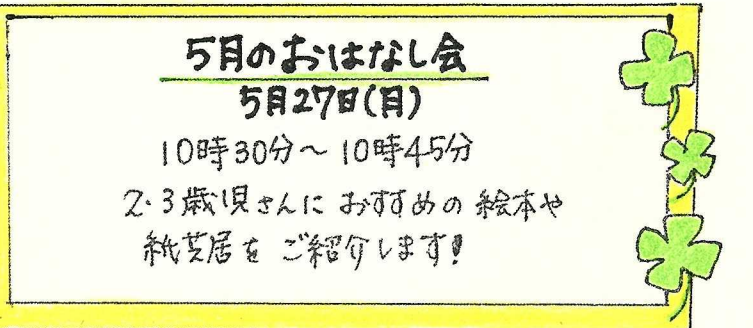 5月のおはなし会
5月27日(月)
10時30分～10時45分
2・3歳児さんに おすすめの 絵本や
紙芝居を ご紹介します!